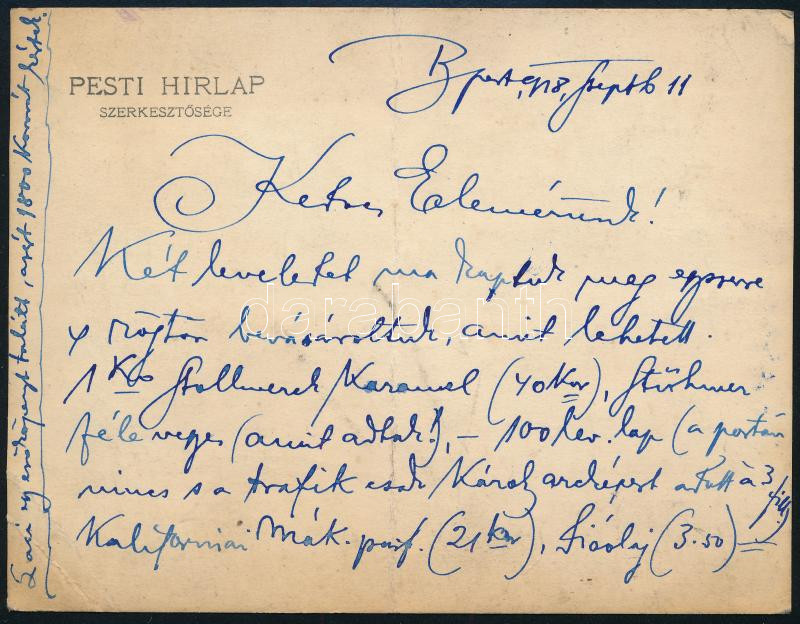 PESTI HIRLAP
SZERKESZTŐSÉGE
Bpest, 918, Septb 11
Kedves Elemérünk!
Két leveledet ma kaptuk meg egyszerre
s rögtön bevásároltunk, amit lehetett.
1 Kgo Stollwerck Karamel (40 Kor), Stühmer
féle vegyes (amit adtak!), – 100 lev. lap (a postán
nincs s a trafik csak Károly arcképest adott à 3 fill.)
Kaliforniai Mák. parf. (21 kor), Sióolaj (3.50) –
Laci egy esőköpenyt talált, azért 1800 Koronát kértek.
darabanth